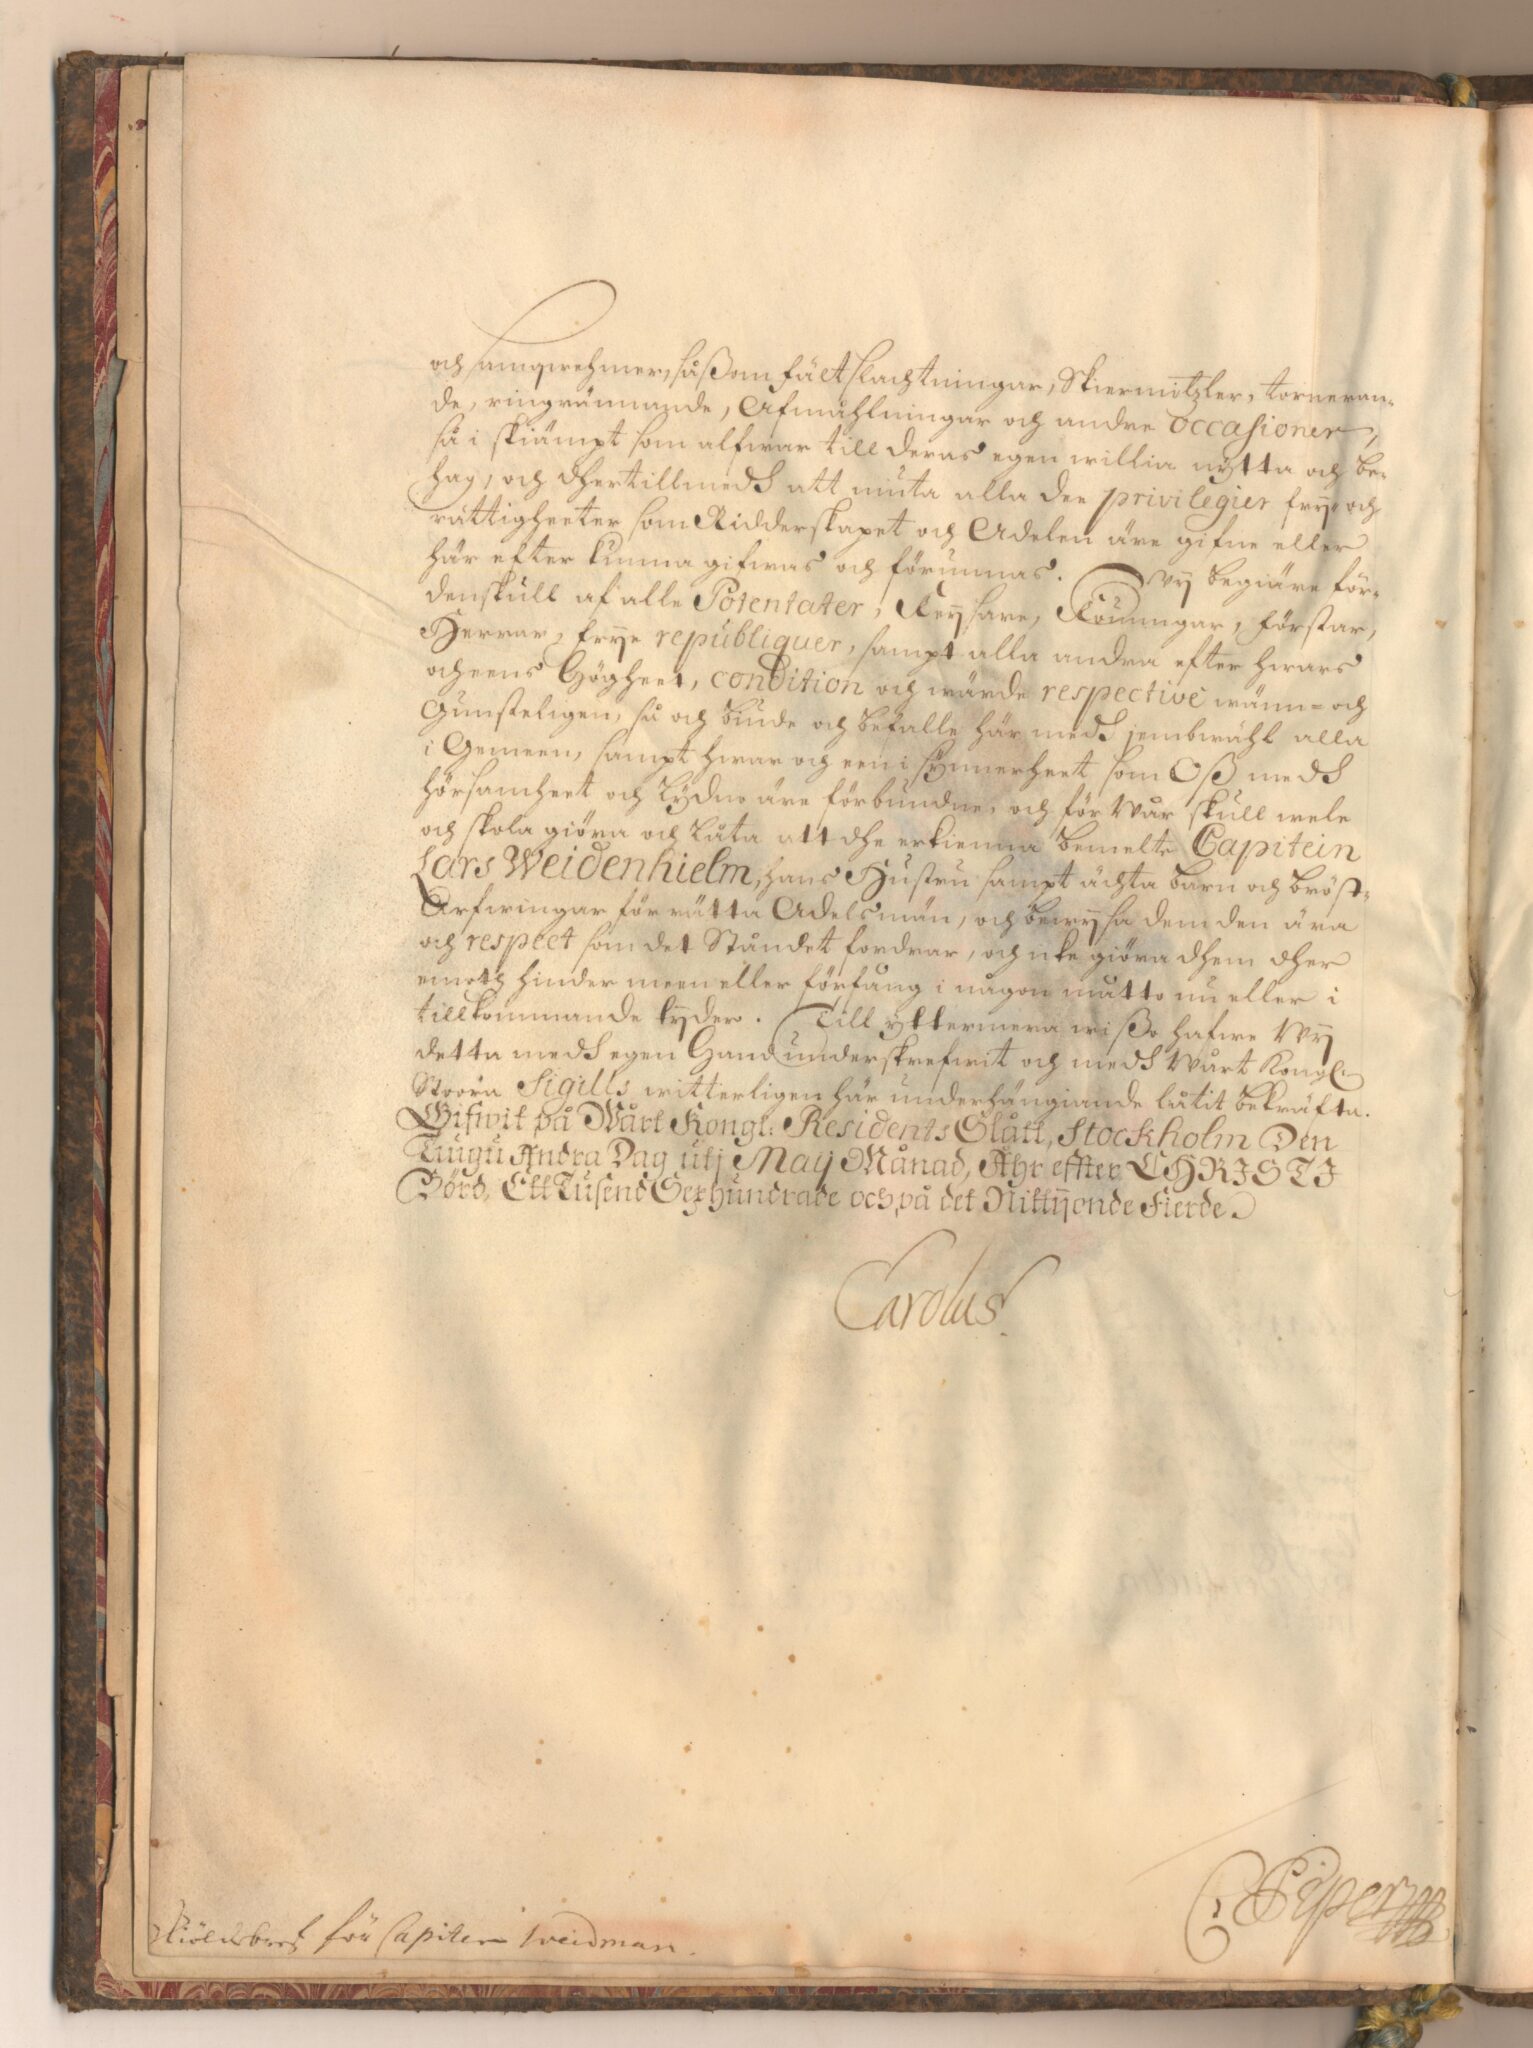 och sampqwehmer, såßom fältslachtningar, Skiermützler, torneran-
de, ringrännande, Afmåhlningar och andre occasioner,
så i skiämpt som alfwar till deras egen willia nÿtta och be-
hag, och dhertillmedh att niuta alla dee privilegier frij- och
rättigheeter som Ridderskapet och Adelen äre gifne eller
här efter kunna gifwas och förunnas. Wij begiäre för-
denskull af alle Potentater, Keijsare, Konungar, Förstar,
Herrar, frije republiquer, sampt alla andra efter hwars
och eens Högheet, condition och wärde respectivè wänn- och
Gunsteligen, så och biude och befalle här medh jembwähl alla
i Gemeen, sampt hwar och een i synnerheet som Oß medh
hörsamheet och lÿdno äre förbundne, och för Wår skull wele
och skola giöra och låta att dhe erkienna bemelte Capitein
Lars Weidenhielm, hans Hustru sampt ächta barn och bröst-
Arfwingar för rätta Adelsmän, och bewijsa dem den ära
och respect som det Ståndet fordrar, och icke giöra dhem dher
emoth hinder meen eller förfång i någon måtto nu eller i
tillkommande tijder. Till ÿttermera wißo hafwe Wij
detta medh egen Hand underskrefwit och medh Wårt Kongl:
Stoora Sigills witterligen här underhängiande låtit bekräfta.
Gifwit på Wårt Kongl: Residents Slått, Stockholm Den
Tiugu Andra Dag utj Maij Månad, Åhr effter CHRISTI
Börd, Ett Tusend Sexhundrade och på det Nittijonde Fierde.
Carolus
C Piper
Skiöldebref för Capiten Weidman.